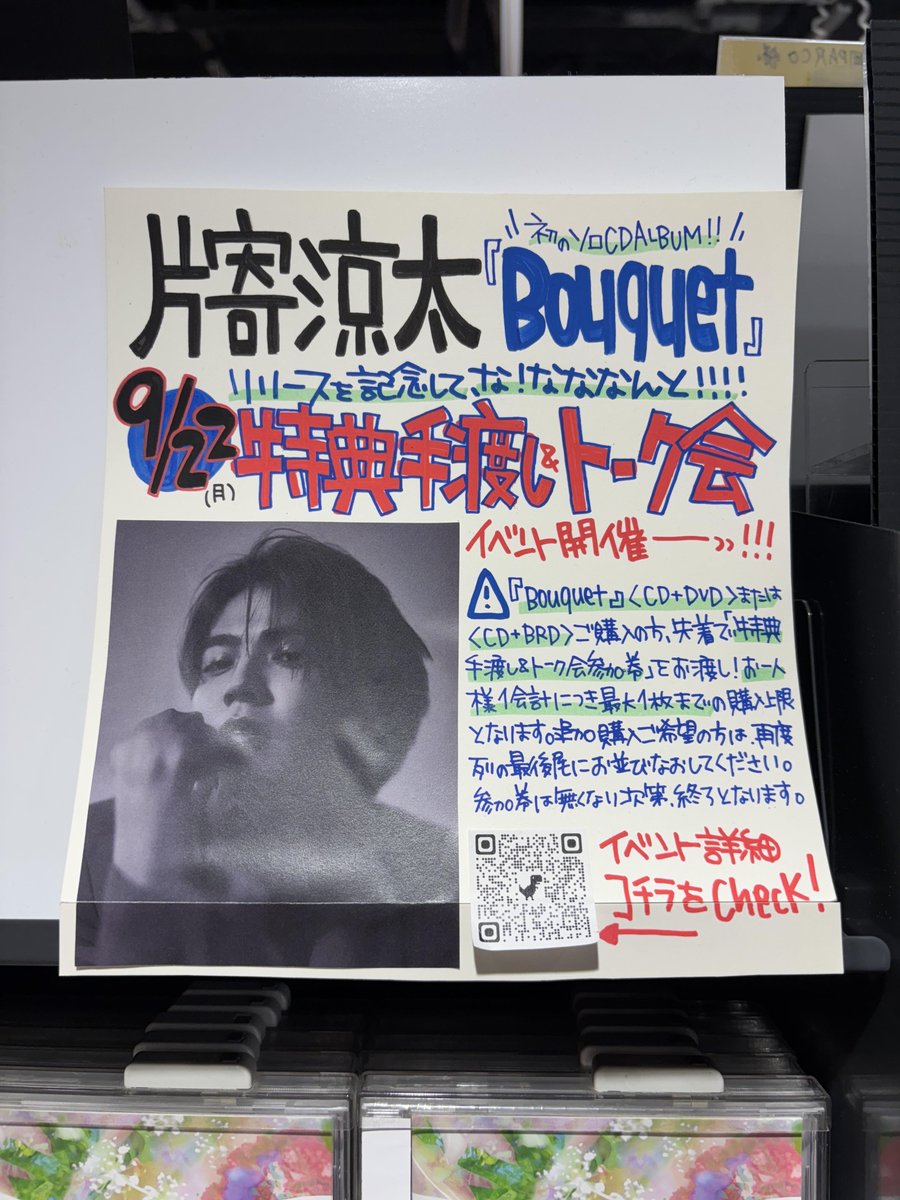 PARCO
初のソロCDALBUM!!
片寄涼太『Bouquet』
リリースを記念して、な!なななんと!!!!
9/22(月)特典手渡し&トーク会
イベント開催―→>>!!!
『Bouquet』<CD+DVD>または
<CD+BRD>ご購入の方、先着で「特典
手渡し&トーク会参加券」をお渡し!お一人
様1会計につき最大1枚までの購入上限
となります。追加購入ご希望の方は、再度
列の最後尾にお並びなおしてください。
参加券は無くなり次第、終了となります。
イベント詳細
コチラをCheck!